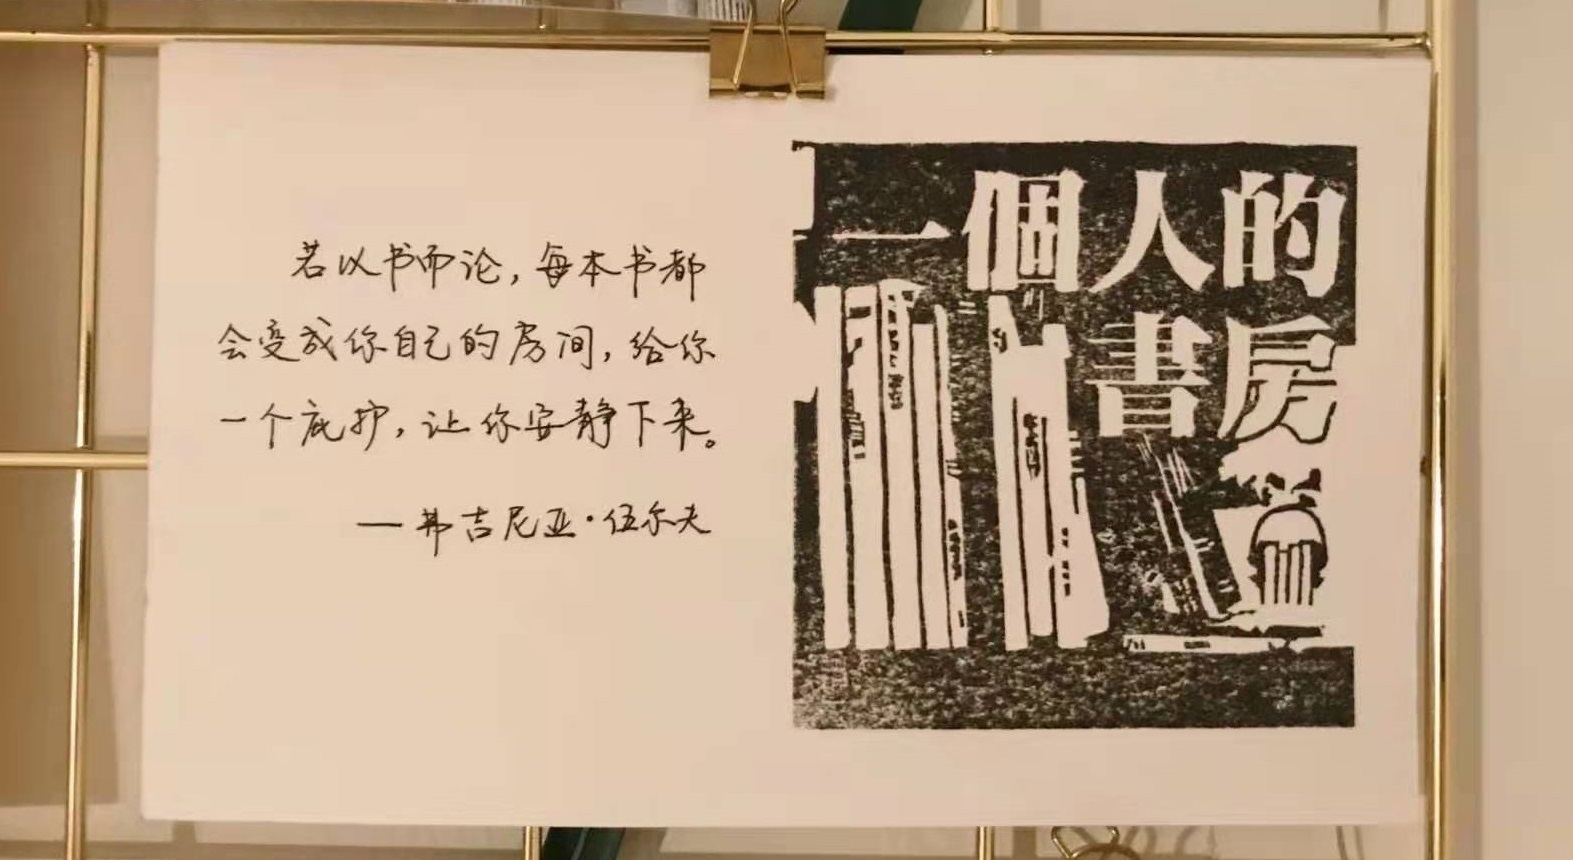 若以书而论，每本书都
会变成你自己的房间，给你
一个庇护，让你安静下来。
— 弗吉尼亚·伍尔夫
一個人的
書房